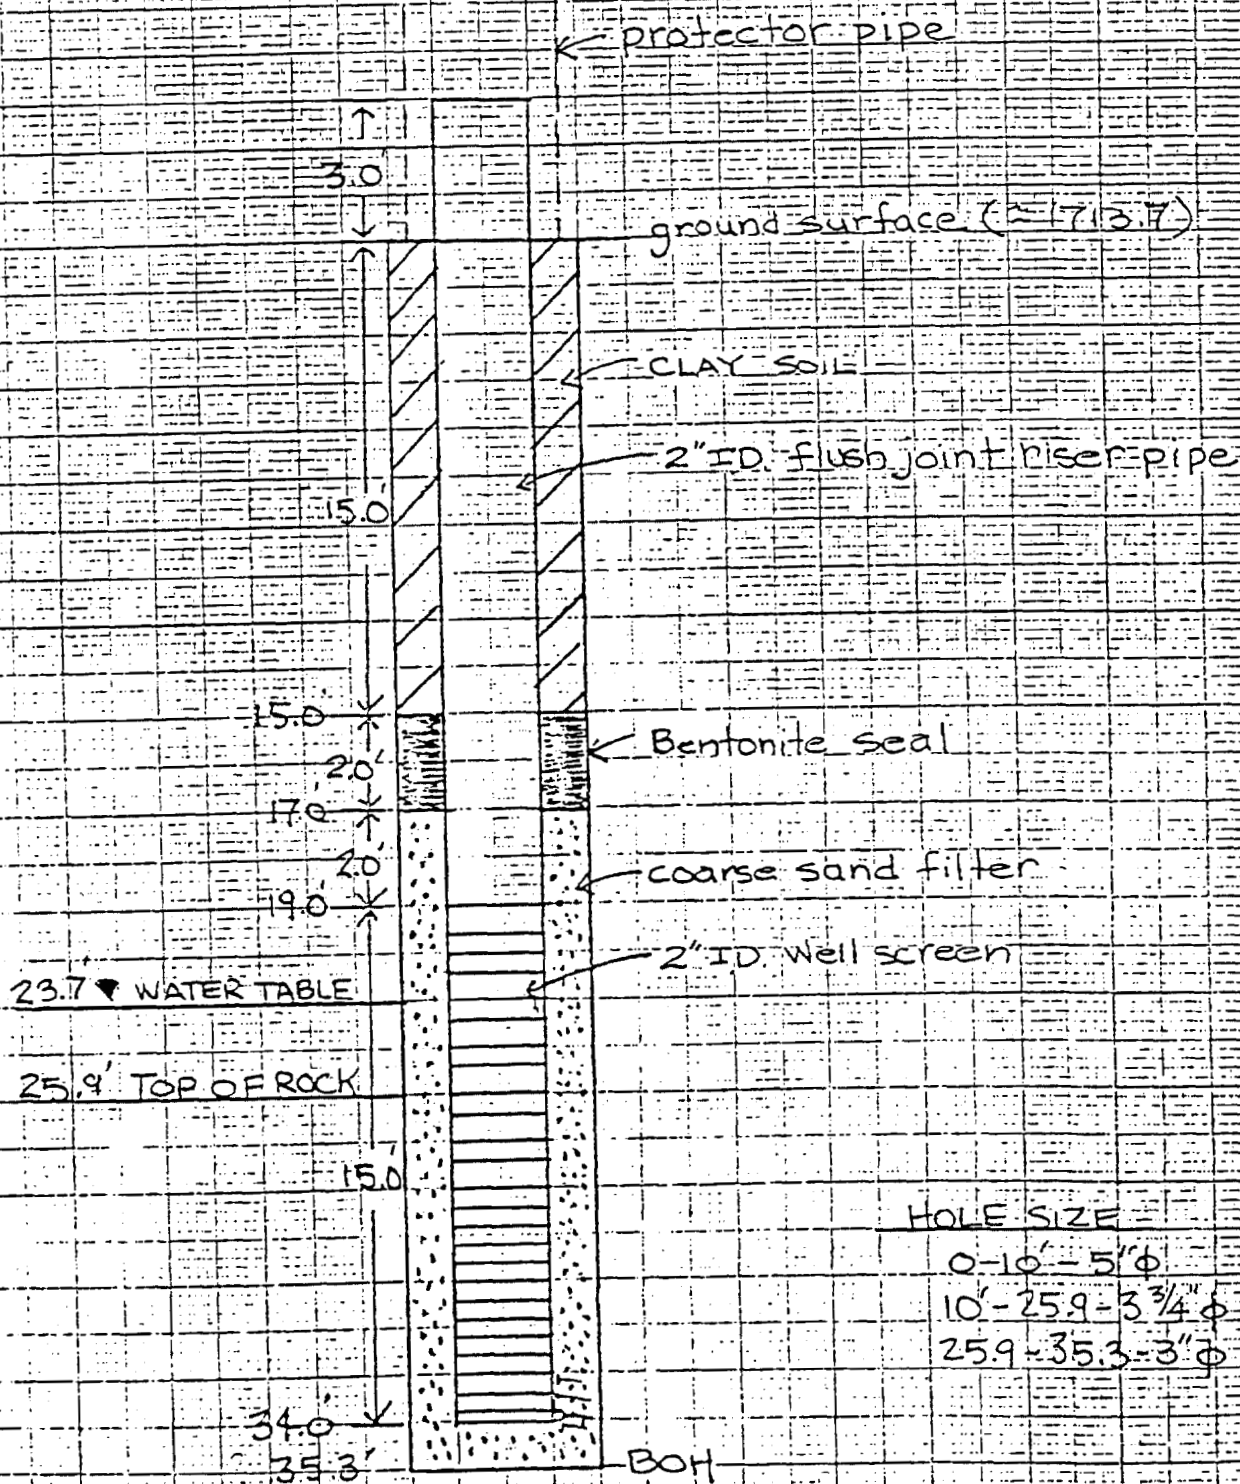 protector pipe
3.0'
ground surface (≈1713.7)
CLAY SOIL
2" I.D. flush joint riser pipe
15.0'
15.0'
Bentonite seal
2.0'
17.0'
2.0'
coarse sand filter
19.0'
2" I.D. Well screen
23.7' ▼ WATER TABLE
25.9' TOP OF ROCK
15.0'
HOLE SIZE
0-10' - 5" ϕ
10'-25.9 - 3 3/4" ϕ
25.9-35.3 - 3" ϕ
34.0'
35.3'
BOH